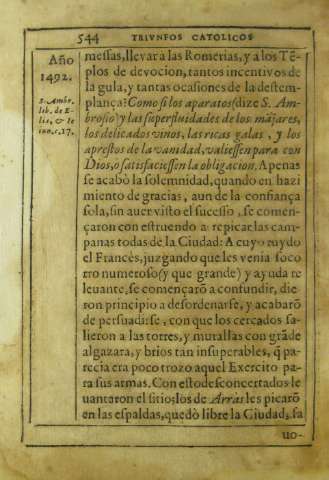 544 TRIVNFOS CATOLICOS
Año
1492.
S. Ambr.
lib. de E-
lia, & Ie
iun. c. 17.
messas, llevar a las Romerias, y a los Tē-
plos de devocion, tantos incentivos de
la gula, y tantas ocasiones de la destem-
plança: Como si los aparatos (dize S. Am-
brosio) y las superfluidades de los mājares,
los delicados vinos, las ricas galas, y los
aprestos de la vanidad, valiessen para con
Dios, o satisfaciessen la obligacion. Apenas
se acabò la solemnidad, quando en hazi
miento de gracias, aun de la confiança
sola, sin auer visto el sucesso, se comen-
çaron con estruendo a repicar las cam
panas todas de la Ciudad: A cuyo ruydo
el Francès, juzgando que les venia soco
rro numeroso (y que grande) y ayuda re
leuante, se començarō a confundir, die
ron principio a desordenarse, y acabarō
de persuadirse, con que los cercados sa-
lieron a las torres, y murallas con grāde
algazara, y brios tan insuperables, q̄ pa
recia era poco trozo aquel Exercito pa-
ra sus armas. Con esto desconcertados le
uantaron el sitio; los de Arràs les picarō
en las espaldas, quedò libre la Ciudad; sa
uo-